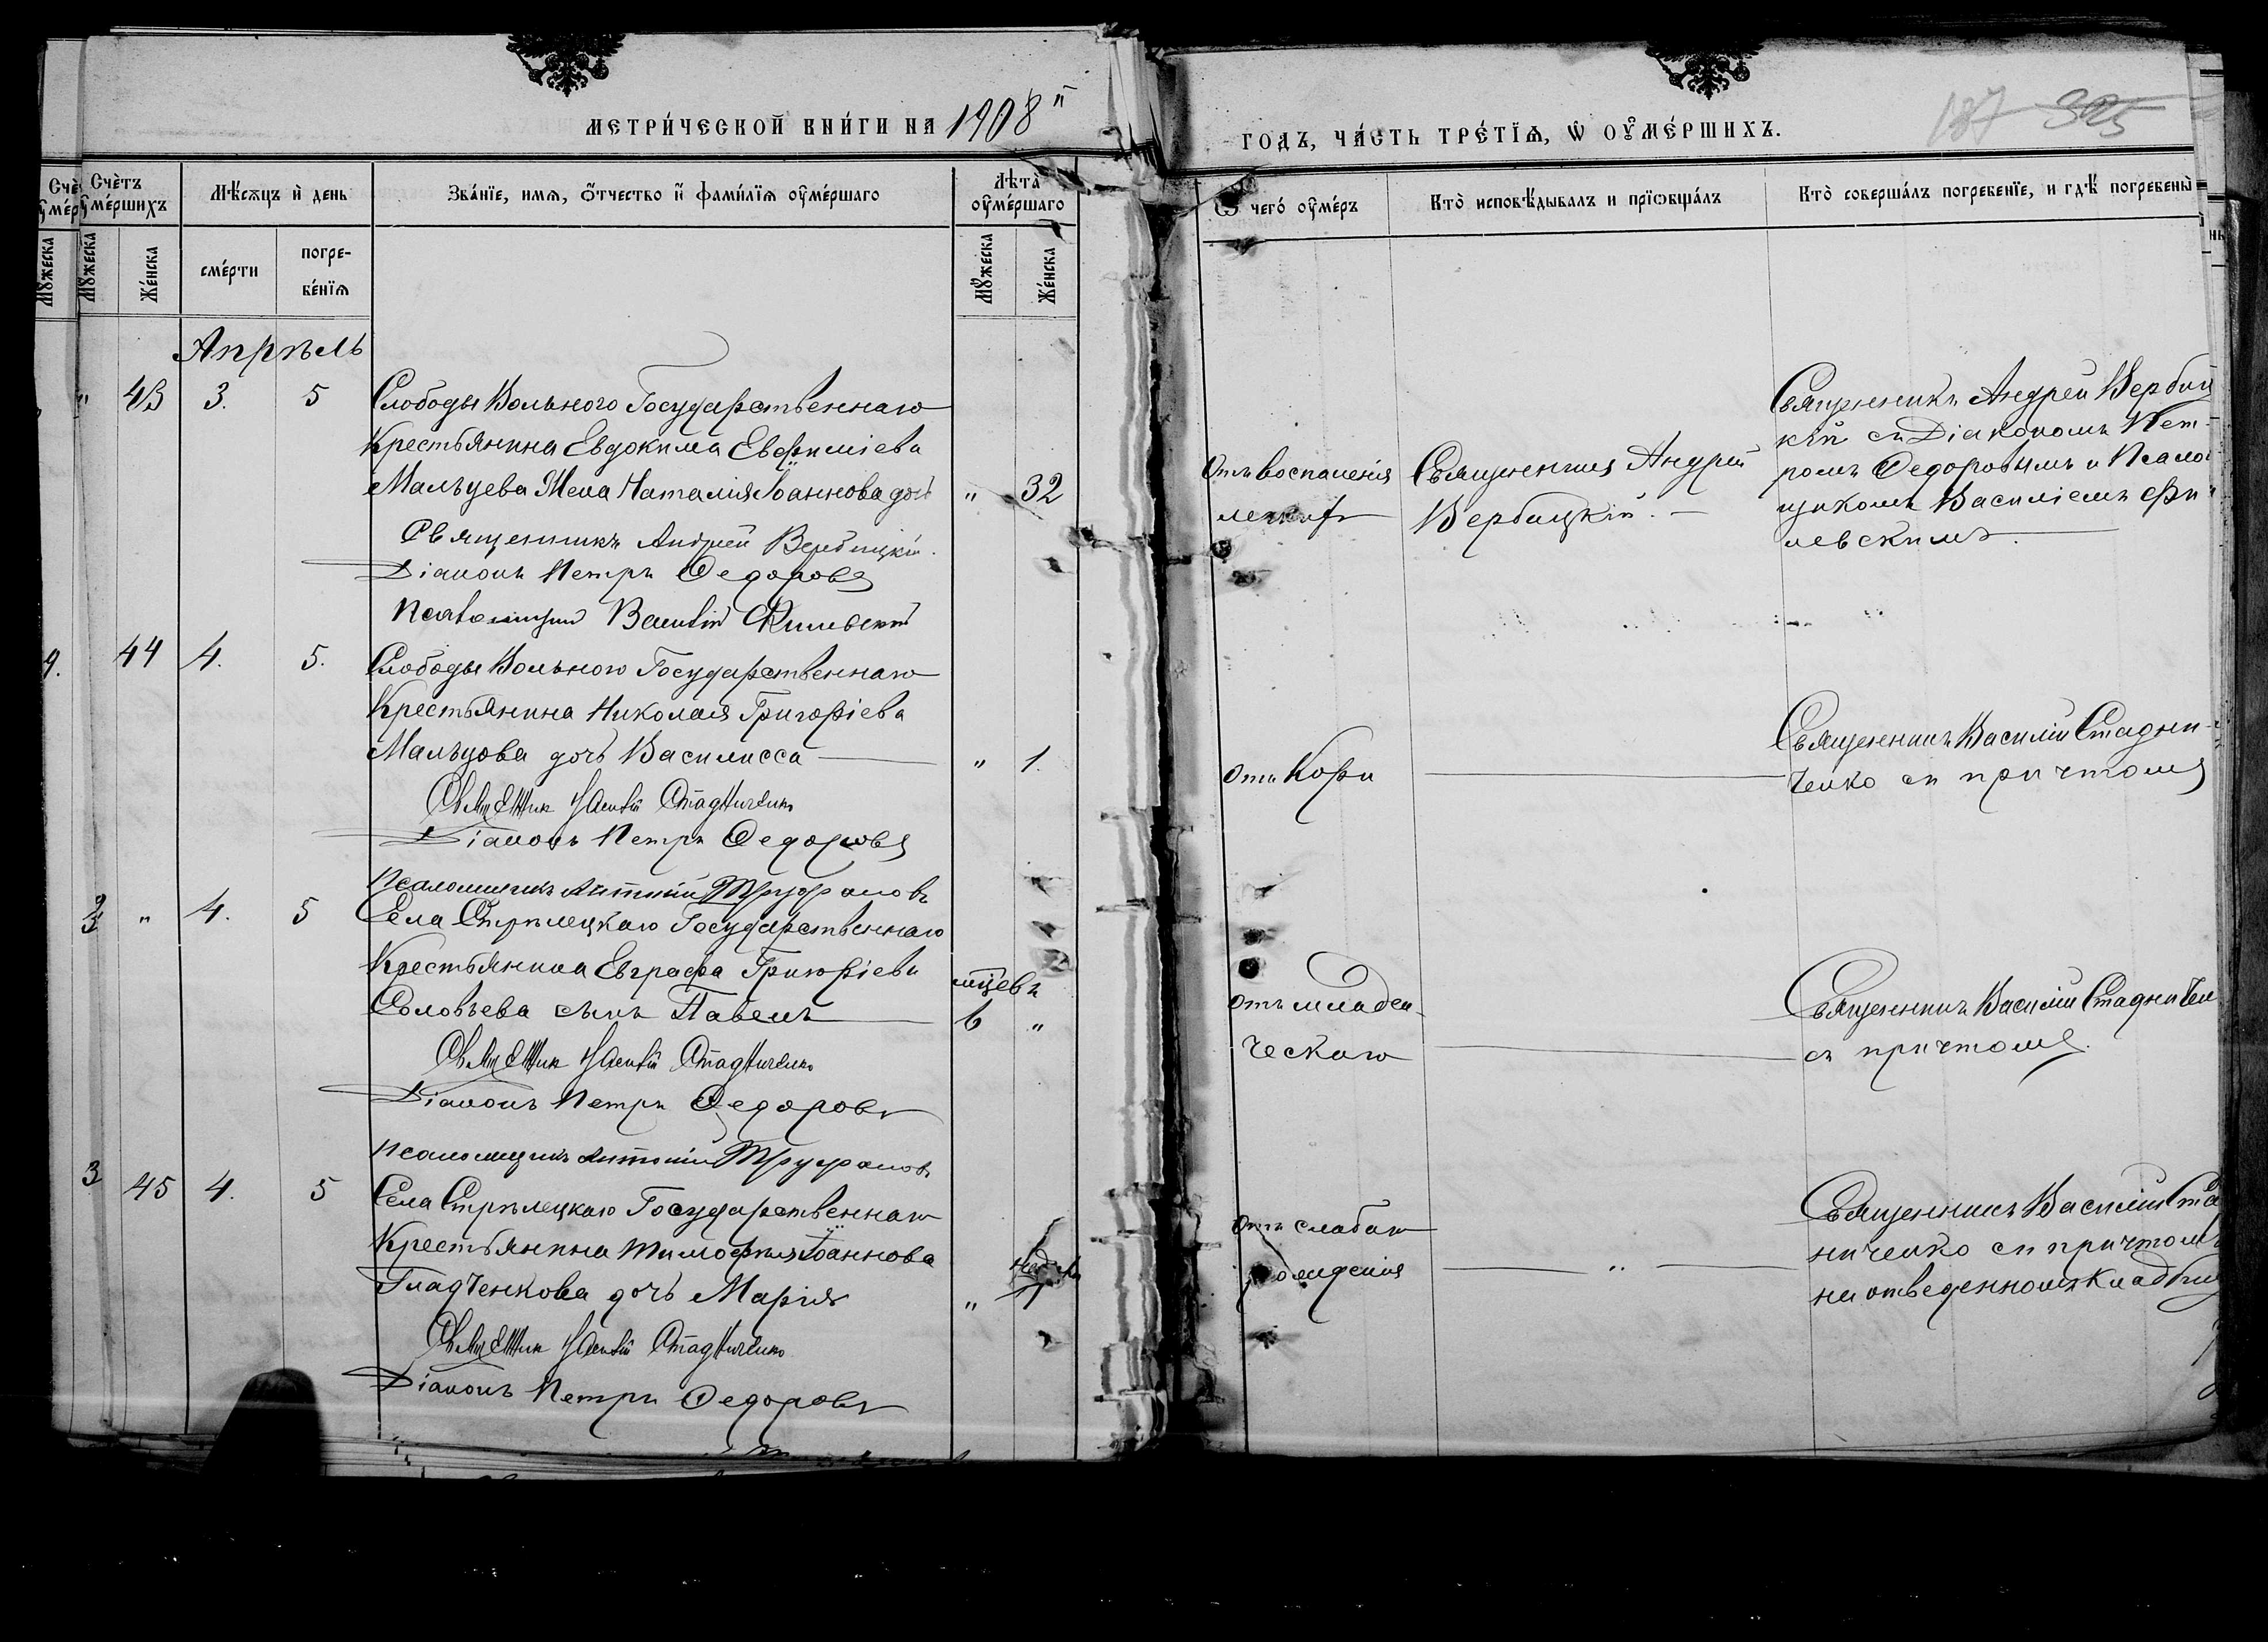 МЕТРИ́ЧЕСКОЙ КНИ́ГИ НА 1908й
ГОДЪ, ЧА́СТЬ ТРЕ́ТЇѦ, Ѡ҆ ОУ҆МЕ́РШИХЪ.
187 325
Счѐтъ оумершихъ
Мѣ́сѧцъ и҆ день
Зва́нїе, имѧ, ѻ҆́тчество и҆ фами́лїѧ оу҆ме́ршаго
Лѣта̀ оу҆ме́ршаго
Ѿ чегѡ̀ оу҆ме́ръ
Кто̀ исповѣ́дывалъ и прїѡбща́лъ
Кто̀ соверша́лъ погребенїе, и гдѣ̀ погребены̀
Мꙋ́жеска
Же́нска
сме́рти
погре-
бе́нїѧ
Мꙋ́жеска
Же́нска
Апрѣль
" 43 3. 5 Слободы Вольного Государственнаго
Крестьянина Евдокима Евфиміева
Мальцева Жена Наталія Іоаннова дочь " 32
Священникъ Андрей Вербицкій.
Діаконъ Петръ Федоровъ
Псаломщикъ Василій
Отъ воспаленія
легкихъ
Священникъ Андрей
Вербицкій. —
Священникъ Андрей Вербиц
кій съ Діакономъ Пет-
ромъ Федоровымъ и Псалом
щикомъ Василіемъ Фи
левскимъ.
44 4. 5. Слободы Вольного Государственнаго
Крестьянина Николая Григоріева
Мальцова дочь Василисса — " 1.
Священник Василій Стадниченко
Діаконъ Петръ Федоровъ
Псаломщикъ Антоній Труфановъ
Отъ Кори
Священникъ Василій Стадни-
ченко съ причтомъ
" 4. 5 Села Стрѣлецкаго Государственнаго
Крестьянина Евграфа Григоріева
Соловьева сынъ Павелъ — мцевъ 6 "
Священник Василій Стадниченко
Діаконъ Петръ Федоровъ
Псаломщикъ Антоній Труфановъ
Отъ младен-
ческаго
Священникъ Василій Стадничен
съ причтомъ.
45 4. 5 Села Стрѣлецкаго Государственнаго
Крестьянина Тимофея Іоаннова
Гладченкова дочь Марія "
Священник Василій Стадниченко
Діаконъ Петръ Федоровъ
Отъ слабаго
рожденія
— " —
Священникъ Василій Ста
ниченко съ причтомъ
на отведенномъ кладбищ